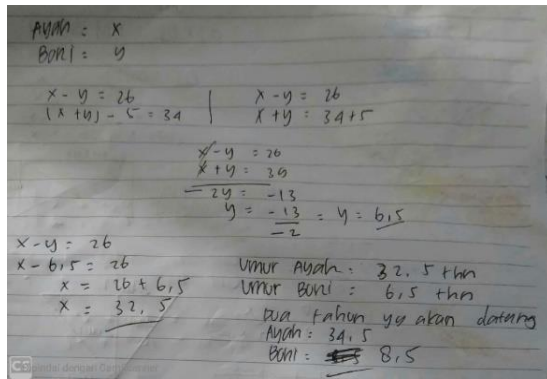 Ayah : x
Boni : y
x - y = 26 | x - y = 26
(x + y) - 5 = 34 | x + y = 34+5
x - y = 26
x + y = 39
- 2y = -13
y = -13/-2 = y = 6,5
x - y = 26
x - 6,5 = 26
x = 26 + 6,5
x = 32,5
Umur Ayah : 32,5 thn
Umur Boni : 6,5 thn
Dua tahun yg akan datang
Ayah : 34,5
Boni : 8,5
CS dengan CamScanner